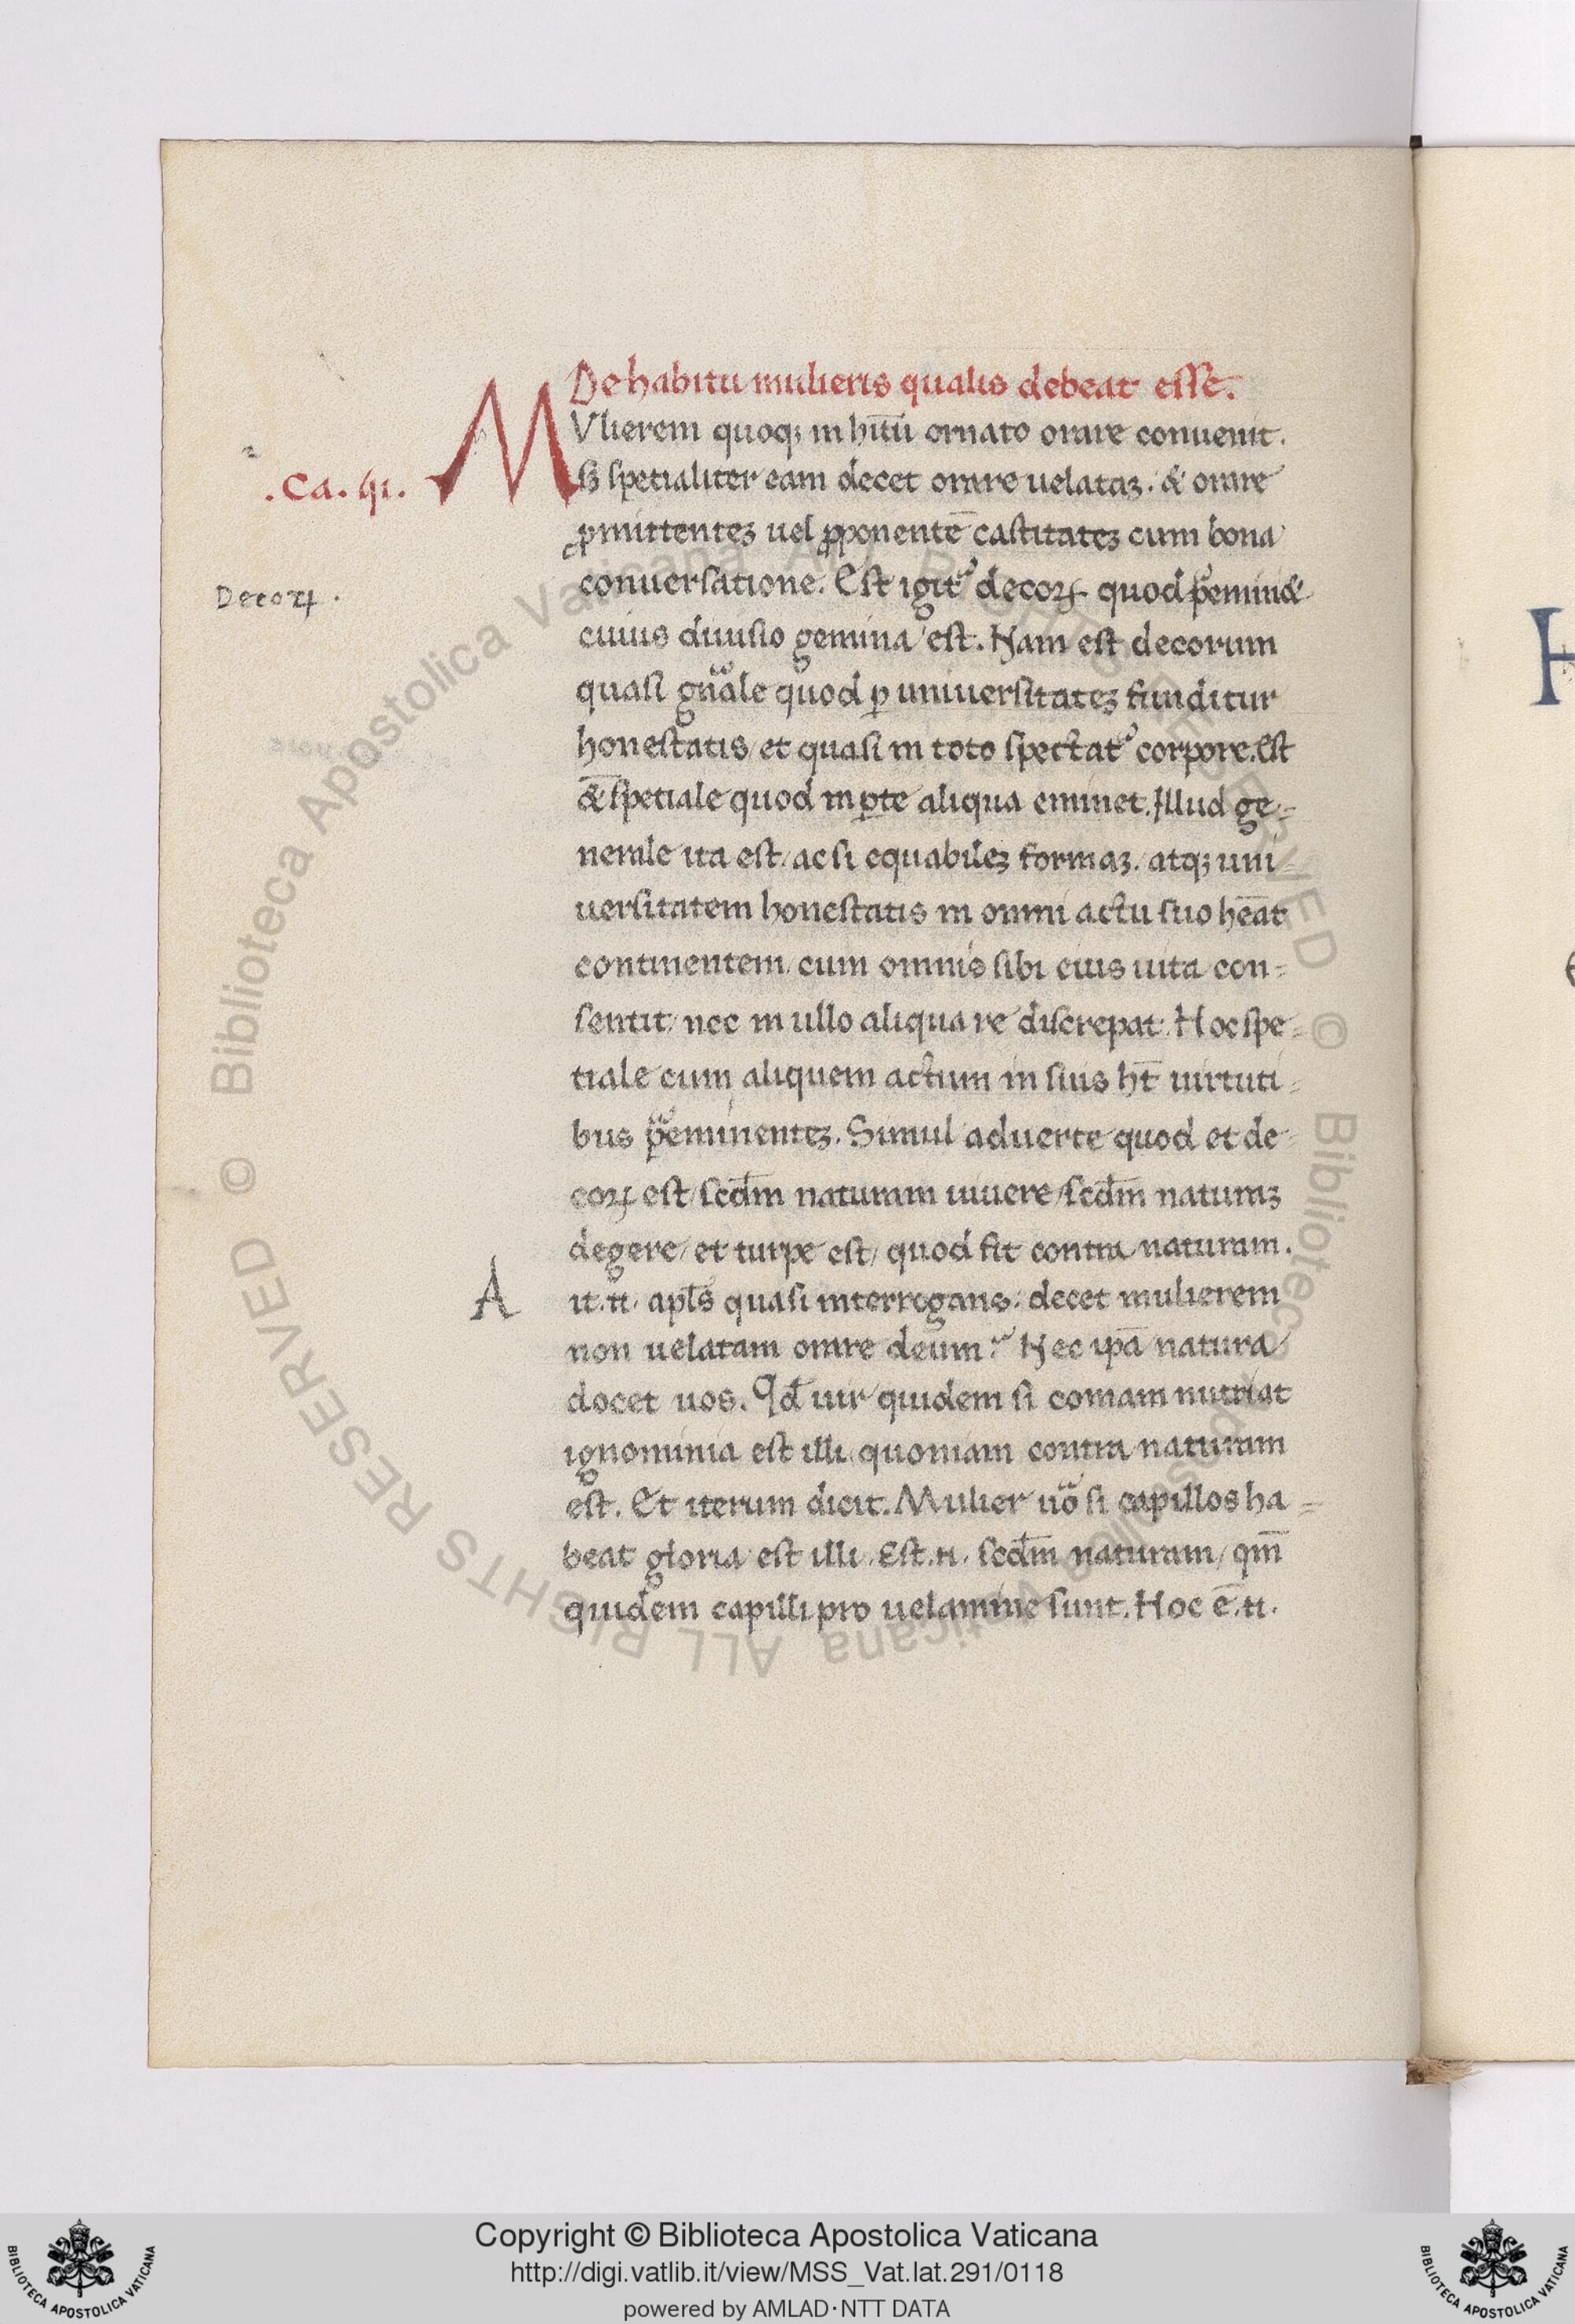 De habitu mulieris qualis debeat esse.
MVlierem quoqꝫ in hitũ ornato orare conuenit.
.Ca. iii.
sꝫ spetialiter eam decet orare uelataꝫ. & orare
ꝓmittenteꝫ uel ꝓponentē castitateꝫ cum bona
conuersatione. Est igit᷑ decoꝝ quod p̃emin&
Decoꝝ.
cuius diuisio gemina est. Nam est decorum
quasi gñale quod ꝑ uniuersitateꝫ funditur
honestatis/ et quasi in toto spectat᷑ corpore. Est
& spetiale quod in ꝑte aliqua eminet. Illud ge=
nerale ita est/ ac si equabileꝫ formaꝫ. atqꝫ uni=
uersitatem honestatis in omni actu suo hēat
continentem/ cum omnis sibi eius uita con=
sentit/ nec in ullo aliqua re discrepat. Hoc spe=
tiale cum aliquem actum in suis ht̄ uirtuti=
bus p̃eminenteꝫ. Simul aduerte quod et de=
coꝝ est/ scd̄m naturam uiuere/ scd̄m naturaꝫ
degere/ et turpe est/ quod fit contra naturam.
A it.n. apl̄s quasi interrogans. decet mulierem
non uelatam orare deum? Nec ip̄a natura
docet uos. Qd̄ uir quidem si comam nutriat
ignominia est illi quoniam contra naturam
est. Et iterum dicit. Mulier uõ si capillos ha=
beat gloria est illi. Est.n. scd̄m naturam/ qm̄
quidem capilli pro uelamine sunt. Hoc ē.n.
H
© Biblioteca Apostolica Vaticana ALL RIGHTS RESERVED © Biblioteca Apostolica Vaticana ALL RIGHTS RESERVED
Copyright © Biblioteca Apostolica Vaticana
http://digi.vatlib.it/view/MSS_Vat.lat.291/0118
powered by AMLAD·NTT DATA
BIBLIOTECA APOSTOLICA VATICANA
BIBLIOTECA APOSTOLICA VATICANA